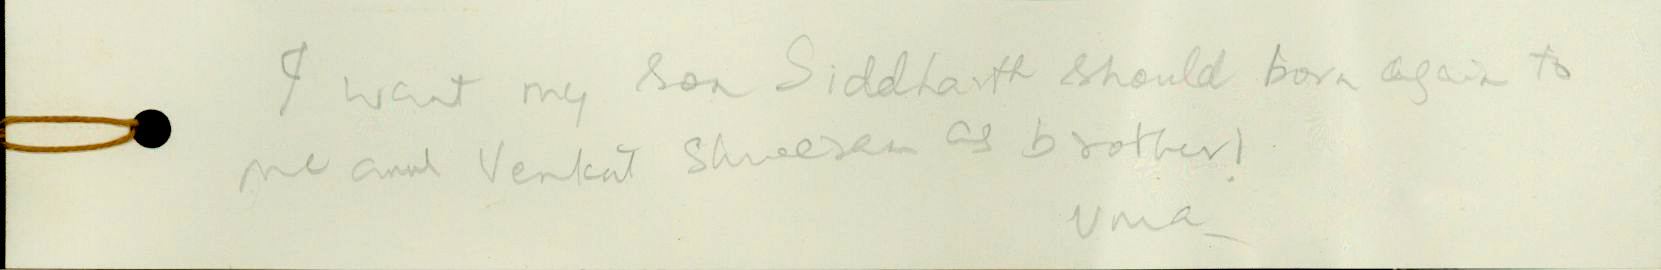 I want my son Siddharth should born again to
me and Venkat Shreeram as brother!
Uma